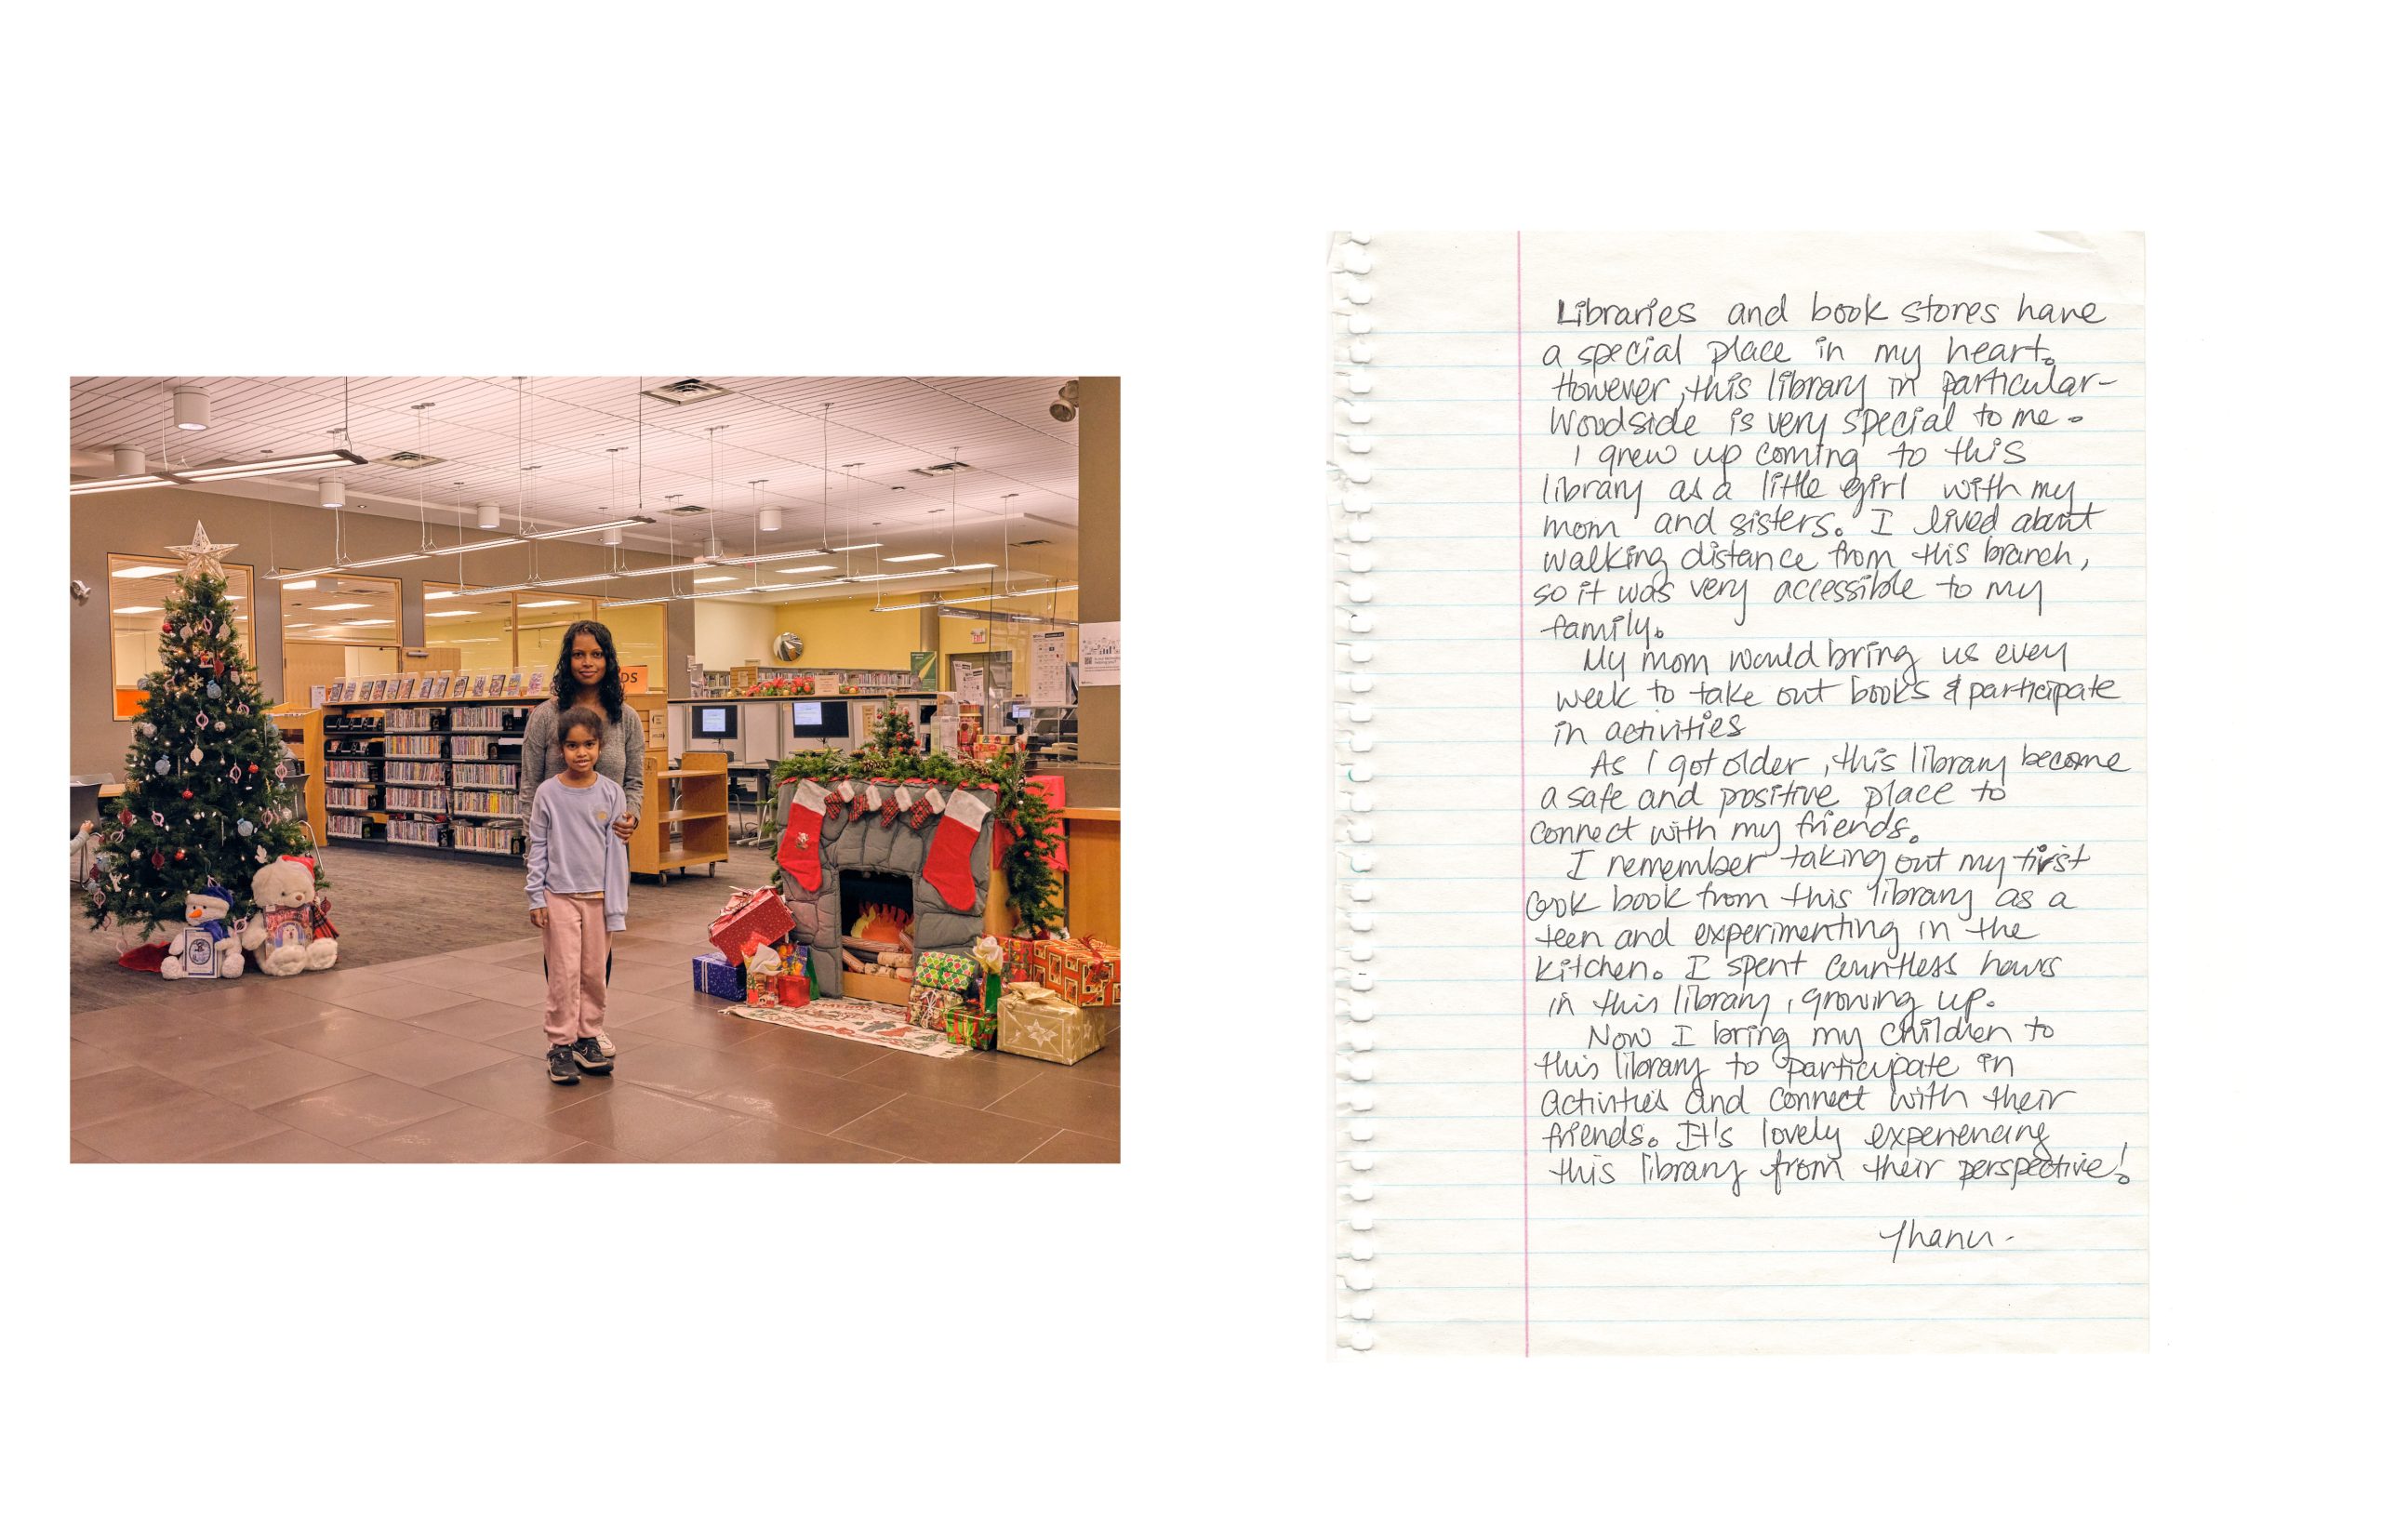 DS
EXIT
Libraries and book stores have
a special place in my heart.
However, this library in particular-
Woodside is very special to me.
I grew up coming to this
library as a little girl with my
mom and sisters. I lived about
walking distance from this branch,
so it was very accessible to my
family.
My mom would bring us every
week to take out books & participate
in activities
As I got older, this library become
a safe and positive place to
connect with my friends.
I remember taking out my first
cook book from this library as a
teen and experimenting in the
kitchen. I spent countless hours
in this library, growing up.
Now I bring my children to
this library to participate in
activities and connect with their
friends. It's lovely experiencing
this library from their perspective!
Thanu-